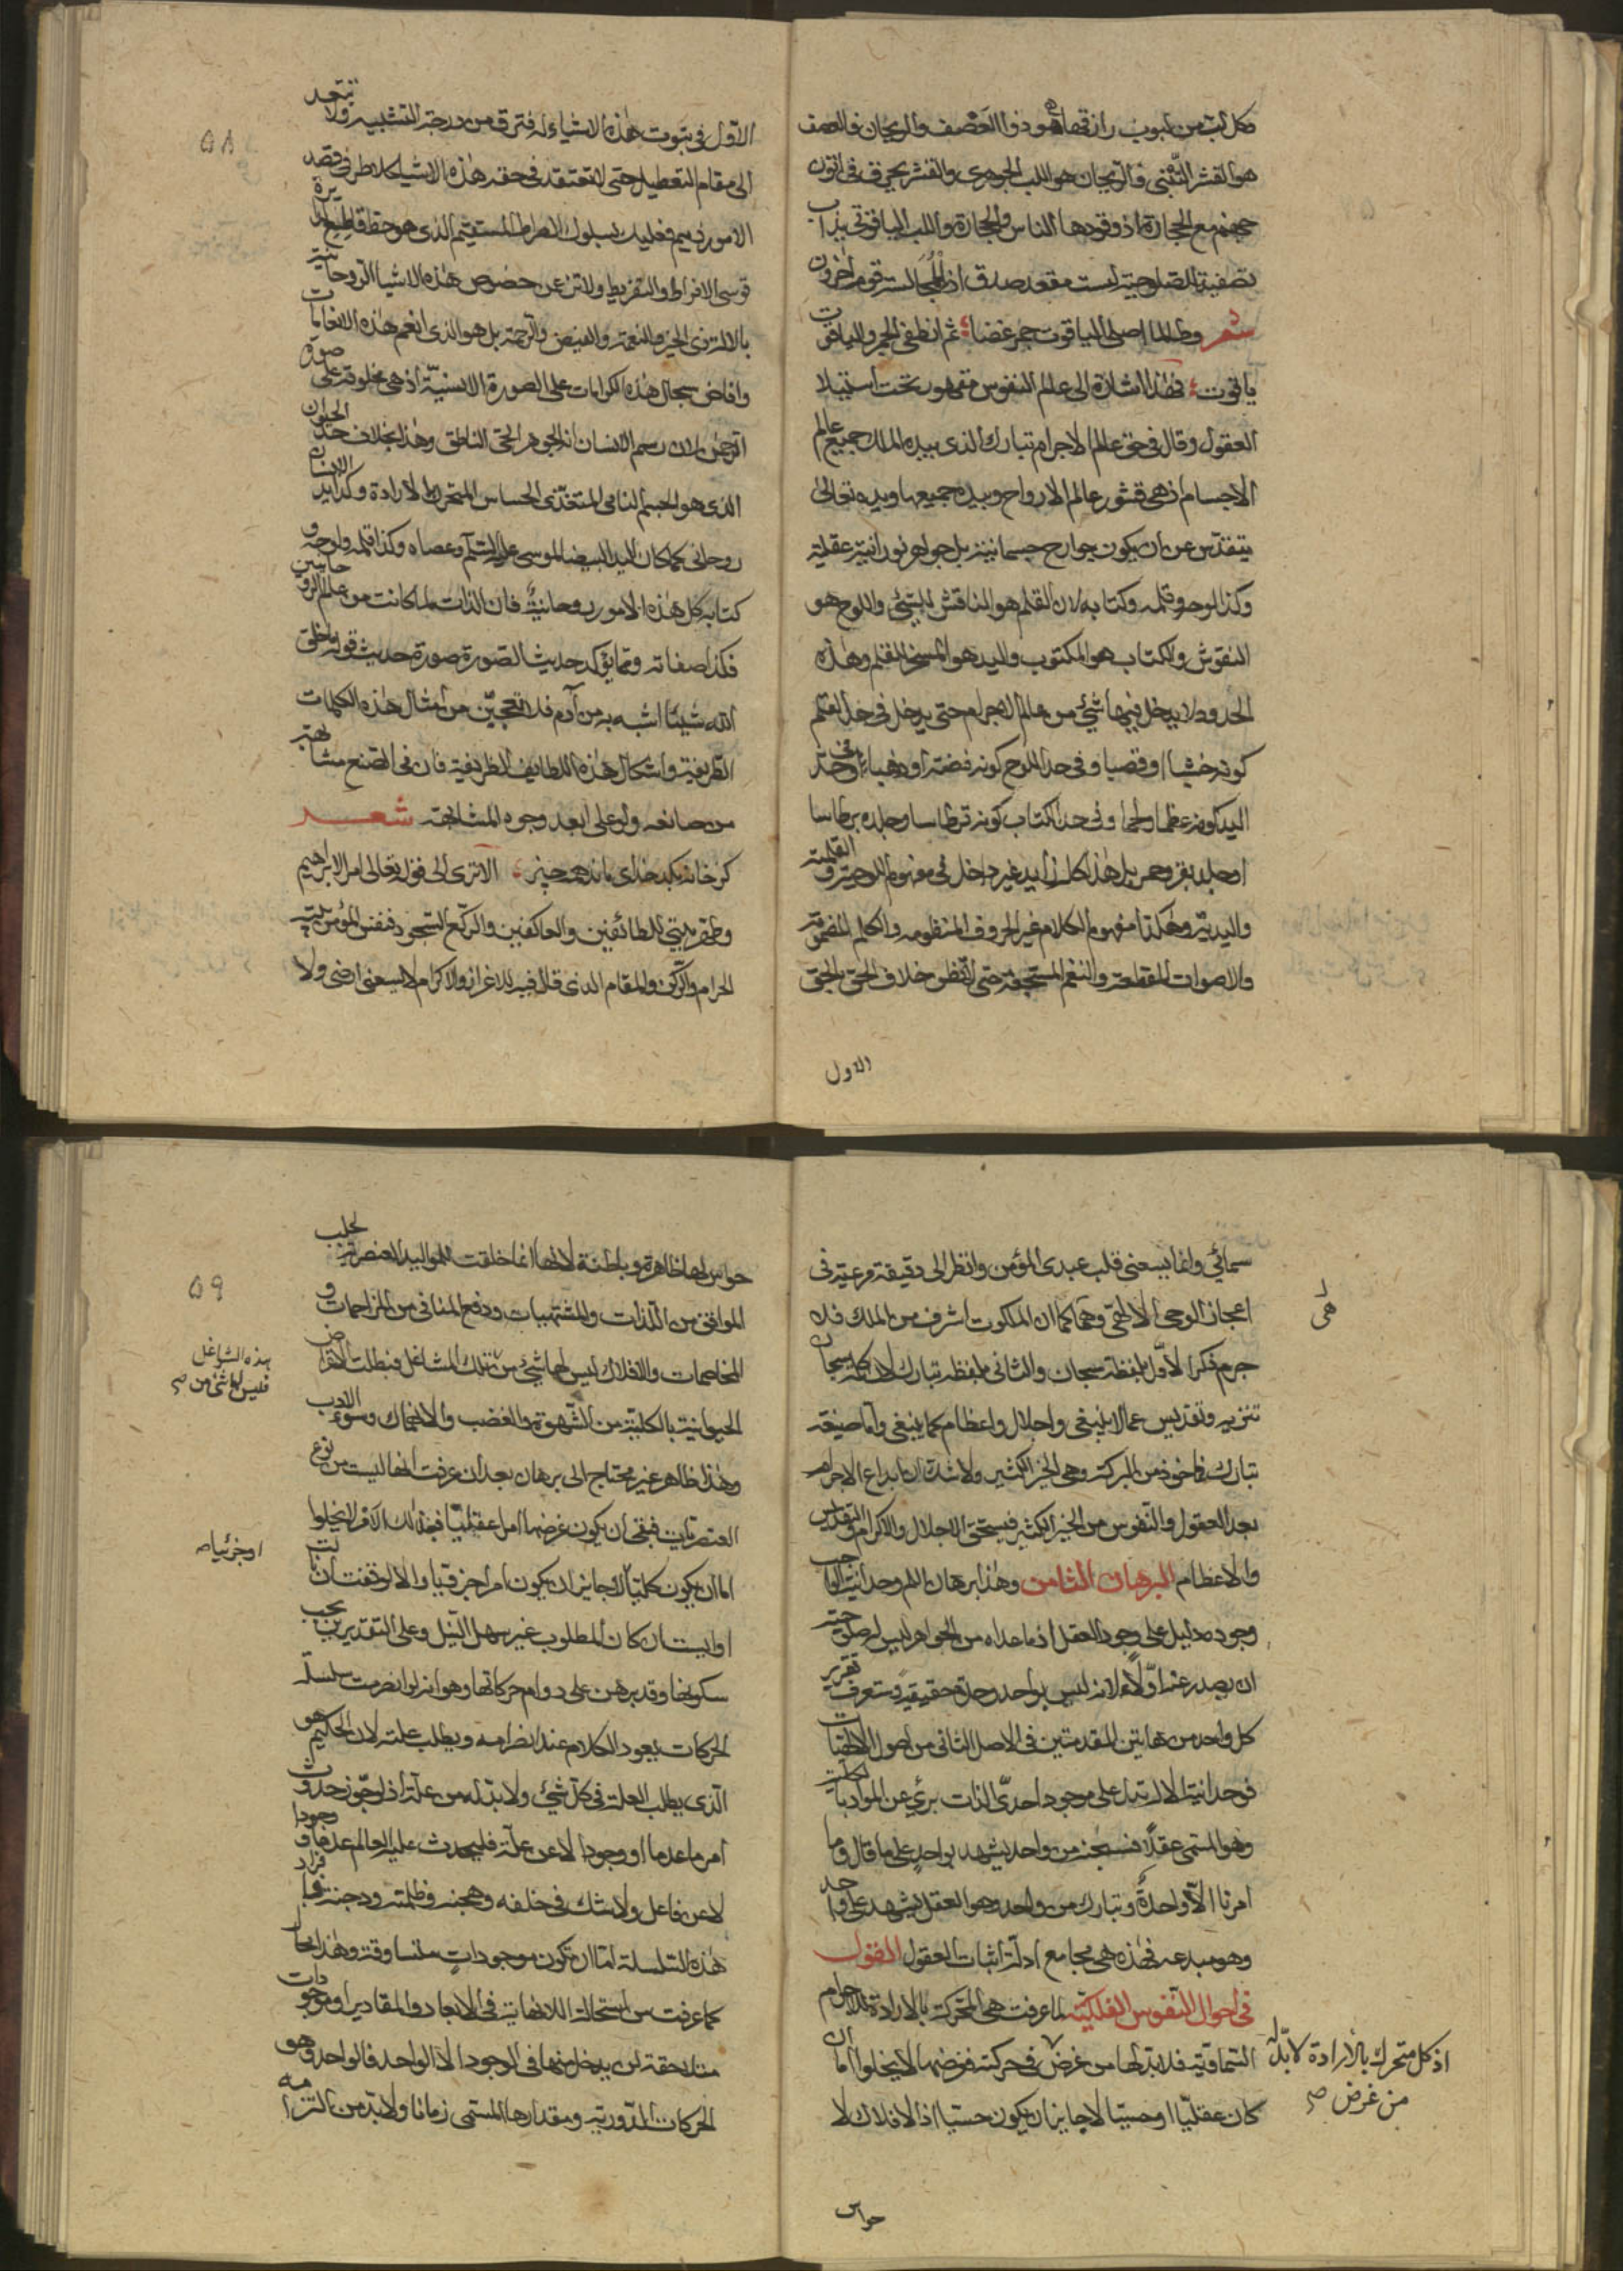 وكل لب من لبوب رازقها هو ذو العصف والريحان فالعصف
هو القشر التبني والريحان هو اللب الجوهري والقشر يحرق في اتون
جهنم مع الحجارة اذ وقودها الناس والحجارة واللب الياقوت
تصفية للصلوحية ليست مقعد صدق اذ لمجالسته قوم آخرون
شعر وطالما اصلي الياقوت جمر غضا ثم انطفى الجمر والياقوت
ياقوت فهذا اشارة الى عالم النفوس مقهور تحت استيلاء
العقول وقال في حق عالم الاجرام تبارك الذي بيده الملك جميع عالم
الاجسام اذ هي قشور عالم الارواح وبيده جميعها ويده تعالى
يتقدس عن ان يكون جوارح جسمانية بل جواهر نورانية عقلية
وكذا لوحه وقلمه وكتابه لان القلم هو الناقش للشئ واللوح هو
النقوش والكتاب هو المكتوب واليد هو المسخر للقلم وهذه
الحدود لا يدخل فيها شئ من عالم الاجرام حتى يدخل في حد القلم
كونه خشبا او قصبا وفي حد اللوح كونه فضة او ذهبا وفي حد
اليد كونه عظما ولحما وفي حد الكتاب كونه قرطاسا وجلده برطاسا
او جلد بقر وحمر بل هذا كله غير داخل في مفهوم اللوحية والقلمية
واليدية وهكذا مفهوم الكلام غير الحروف المنظومة والكلم المضمومة
والاصوات المقطعة والنغم حتى لا تظن خلاف الحق بالحق
الاول
الاول في ثبوت هذه الاشياء له فترق من درجة التشبيه ولا تبتعد
الى مقام التعطيل حتى لا تعتقد في حقه هذه الاشياء كلا طرفي قصد
الامور ذميم فعليك بسلوك الصراط المستقيم الذي هو حقا قاطع
قوسي الافراط والتفريط ولا تن عن خصوص هذه الاشياء الروحانية
بالاله ذي الخير والنعمة والفيض والرحمة بل هو الذي انعم هذه الانعامات
وافاض سجال هذه الكرامات على الصورة الانسية اذ هي مخلوقة على صورة
الرحمن لان رسم الانسان انه الجوهر الحي الناطق وهذا بخلاف حد الحيوان
الذي هو الجسم النامي المتغذي الحساس المتحرك بالارادة وكذا يد الانسان
روحاني كما كان اليد البيضاء لموسى عليه السلم وعصاه وكذا قلمه ولوحه و
كتابه كل هذه الامور روحانية فان الذات لما كانت من عالم الروحانيين
فكذا صفاته ومما يؤكد حديث الصورة صورة حديث قوله ما خلق
الله شيئا اشبه به من آدم فلا تتعجبن من امثال هذه الكلمات
الظريفة واشكال هذه اللطايف الظريفة فان في الصنع مشابهة
من صانعه ولو على ابعد وجوه المشابهة شعر
كز خانه بكدخداى ماند همه چيز الا ترى الى قوله تعالى امر الابراهيم
وطهر بيتي للطائفين والعاكفين والركع السجود فنفس المؤمن بيته
الحرام والركن والمقام الذي قال فيه للاعزاز والاكرام لا يسعني ارضي ولا
٥٨
سمائي وانما يسعني قلب عبدي المؤمن وانظر الى دقيقة مرعية في
اعجاز الوحي الالهي وهي انه كما ان الملكوت اشرف من الملك فلا
جرم ذكر الاول بلفظة سبحان والثاني بلفظة تبارك لان كلمة سبحان
تنزيه وتقديس عما لا ينبغي واجلال واعظام كما ينبغي واما صيغة
تبارك فمأخوذ من البركة وهي الخير الكثير ولا شك ان ابداع الاجرام
بعد العقول والنفوس من الخير الكثير فيستحق الاجلال والاكرام والتقديس
والاعظام البرهان الثامن وهذا برهان اللم وحدانية الواجب
وجوده دليل على وجود العقل اذ ما عداه من الجواهر ليس له صلوحية
ان يصدر عنه اولا لانه ليس بواحد وحدة حقيقية وستعرف تقرير
كل واحد من هاتين المقدمتين في الاصل الثاني من اصول الالهيات
فوحدانية الاله تدل على موجود احدي الذات برئ عن المواد بالكلية
وهو المسمى عقلا فسبحن من واحد يشهد بواحد على ما قال وما
امرنا الا واحدة وتبارك من واحد وهو العقل يشهد على واحد
وهو مبدعه فهذه هي مجامع ادلة اثبات العقول القول
في احوال النفوس الفلكية لما عرفت هي المحركة بالارادة للاجرام
السماوية فلا بد لها من غرض في حركته فغرضها لا يخلوا اما ان
كان عقليا او حسيا لا جايز ان يكون حسيا اذ الافلاك لا
هي
اذ كل متحرك بالارادة لا بد له
من غرض صح
حواس
حواس لها ظاهرة وباطنة لانها انما خلقت للمواليد العنصرية لجلب
الموافق من اللذات والمشتهيات ودفع المنافي من المزاحمات و
المخاصمات والافلاك ليس لها شئ من تلك المشاغل فبطلت الاغراض
الحيوانية بالكلية من الشهوة والغضب والانهماك وسوء الادب
وهذا ظاهر غير محتاج الى برهان بعد ان عرفت انها ليست من نوع
العنصريات فبقي ان يكون غرضها امرا عقليا فذلك الامر لا يخلوا
اما ان يكون كليا لا جايز ان يكون امرا جزئيا والا لوقفت ان نالت
او ايست ان كان المطلوب غير سهل النيل وعلى التقديرين يجب
سكونها وقد برهن على دوام حركاتها وهو انه لو انصرمت سلسلة
الحركات يعود الكلام عند انصرامه ويطلب علته لان الحكيم هو
الذي يطلب العلة في كل شئ ولا بد له من علة اذ لو جوز حدوث
امر ما عدما او وجودا لا عن علة فليحدث عليه العالم عدما ووجودا
لا عن فاعل ولا شك في خلفه وهجنه وظلمته ودجنته
هذه السلسلة اما ان تكون موجودات متساوقة وهذا محال
كما عرفت من استحالة اللانهاية في الابعاد والمقادير او موجودات
متلاحقة لن يدخل منها في الوجود الا الواحد فالواحد وهو
الحركات الدورية ومقدارها المسمى زمانا ولا بد من التزامه
٥٩
هذه الشواغل
فليس لها شئ من صح
او جزئيا صح